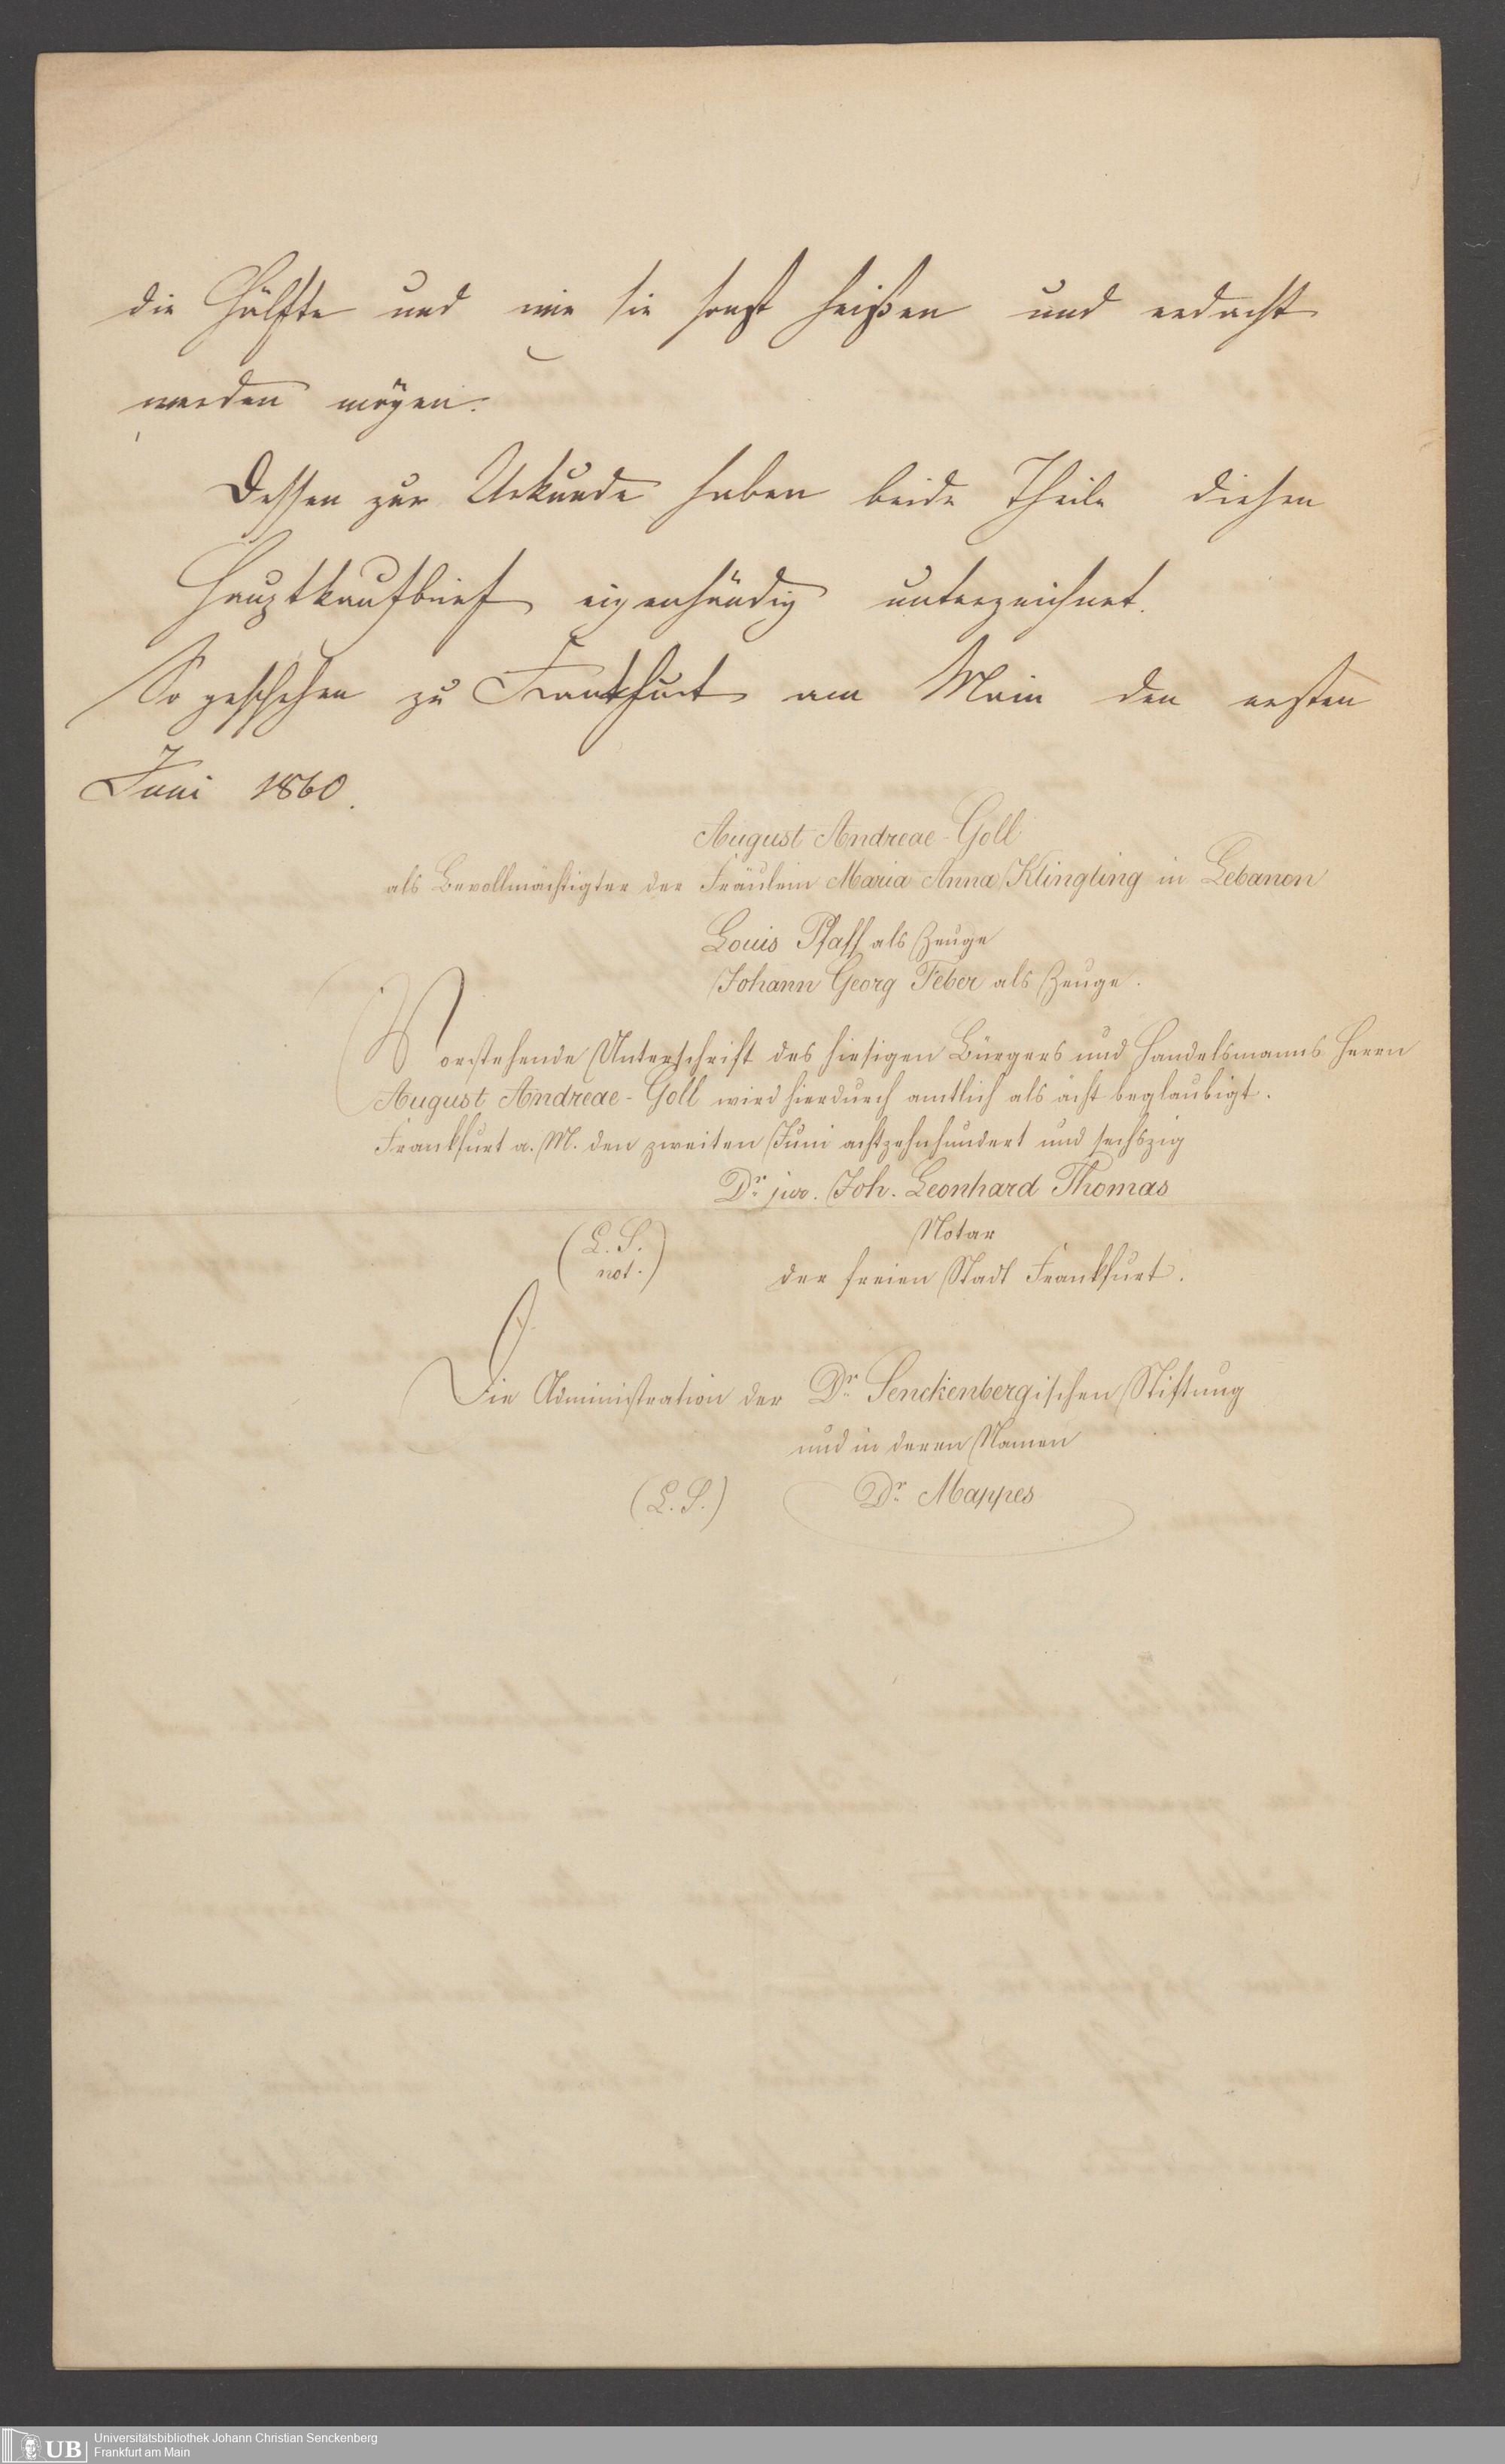 die Hälfte und wie sie sonst heißen und erdacht
werden mögen.
Dessen zur Urkunde haben beide Theile diesen
Hauptkaufbrief eigenhändig unterzeichnet.
So geschehen zu Frankfurt am Main den ersten
Juni 1860.
August Andreae-Goll
als Bevollmächtigter der Fräulein Maria Anna Klingling in Lebanon
Louis Pfaff als Zeuge
Johann Georg Feber als Zeuge.
Vorstehende Unterschrift des hiesigen Bürgers und Handelsmanns Herrn
August Andreae-Goll wird hierdurch amtlich als ächt beglaubigt.
Frankfurt a. M. den zweiten Juni achtzehnhundert und sechszig
Dr. jur. Joh. Leonhard Thomas
(L. S. not.) Notar
der freien Stadt Frankfurt.
Die Administration der Dr. Senckenbergischen Stiftung
und in deren Namen
(L. S.) Dr. Mappes
UB Universitätsbibliothek Johann Christian Senckenberg
Frankfurt am Main